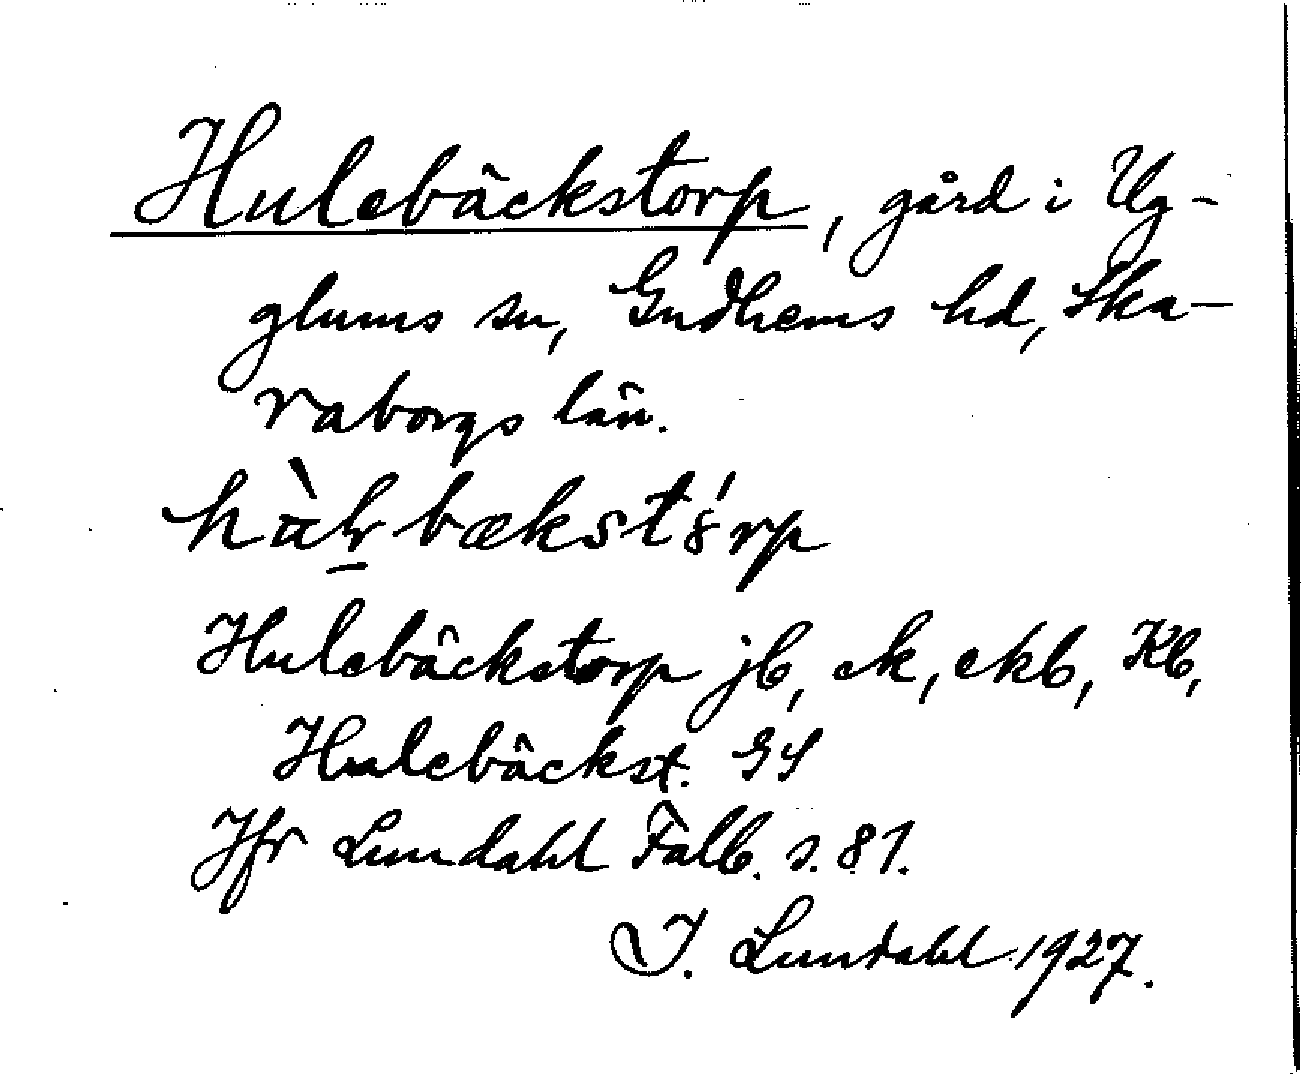 Hulebäckstorp, gård i Ug-
glums sn, Gudhems hd, Ska-
raborgs län.
hàl̠bækstȯ́rp
Hulebäckstorp jb, ek, ekb, Kb,
Hulebäckst. GS
Jfr Lundahl Falb. s. 81.
I. Lundahl 1927.